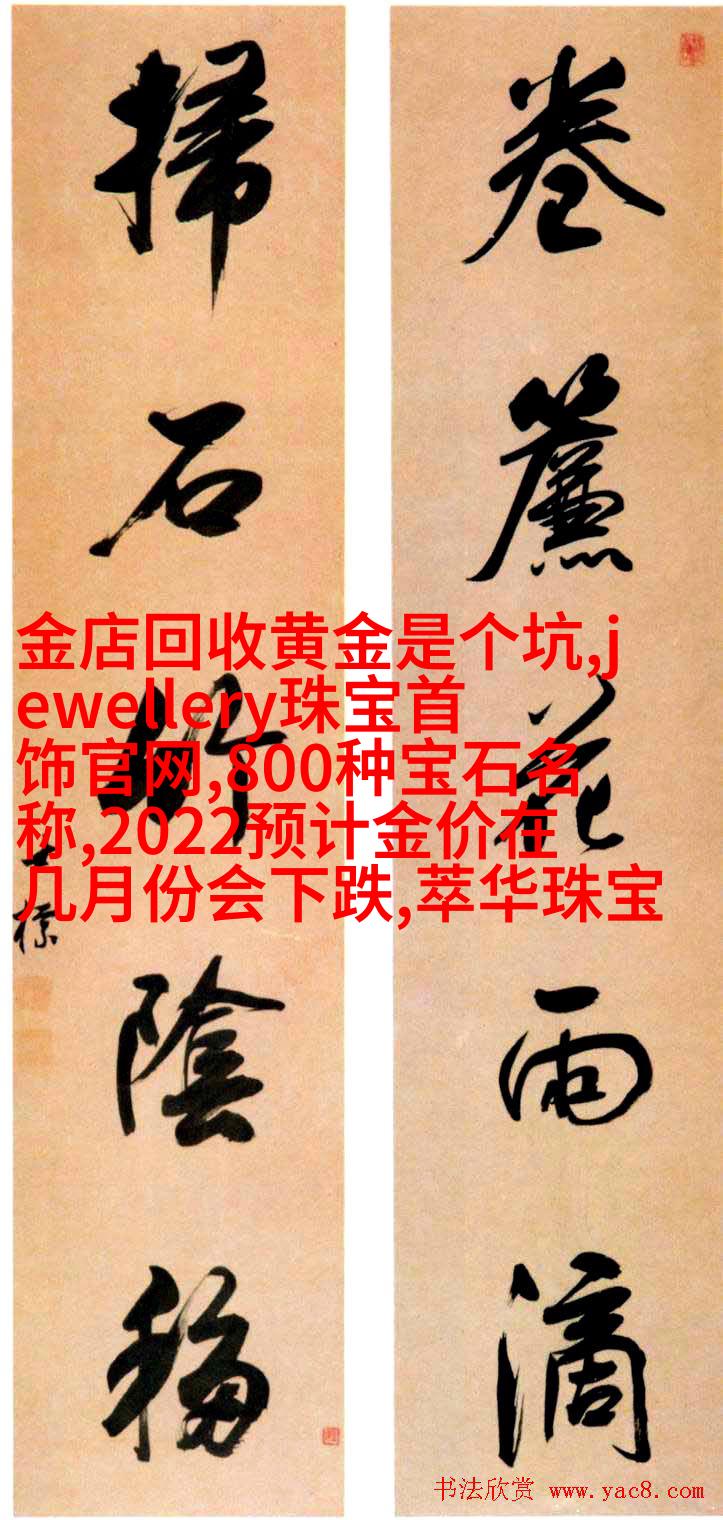 卷簾花雨滴
掃石竹陰移
金店回收黄金是个坑,j
ewellery珠宝首
饰官网,800种宝石名
称,2022预计金价在
几月份会下跌,萃华珠宝
书法欣赏 www.yac8.com